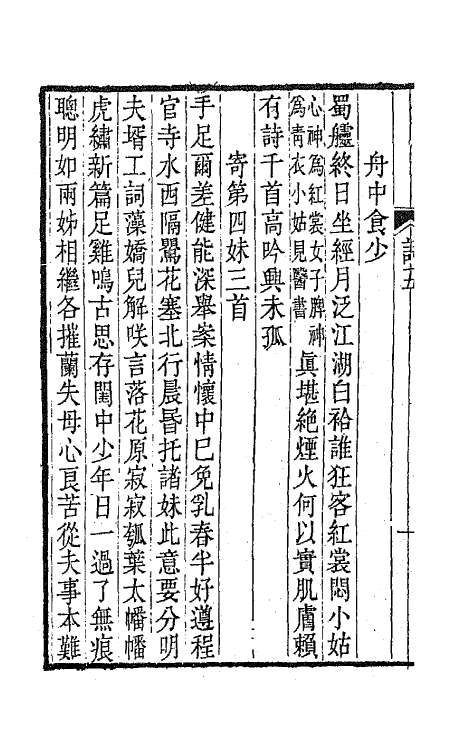 舟中食少
蜀艫終日坐經月泛江湖白袷誰狂客紅裳悶小姑
心神爲紅裳女子脾神
爲靑衣小姑見醫書
眞堪絶煙火何以實肌膚賴
有詩千首高吟興未孤
寄第四妹三首
手足爾差健能深舉案情懷中已免乳春半好遵程
官寺水西隔鴽花塞北行晨昏托諸妹此意要分明
夫壻工詞藻嬌兒解咲言落花原寂寂瓠葉太幡幡
虎繡新篇足雞鳴古思存閨中少年日一過了無痕
聰明如兩姊相繼各摧蘭失母心良苦從夫事本難